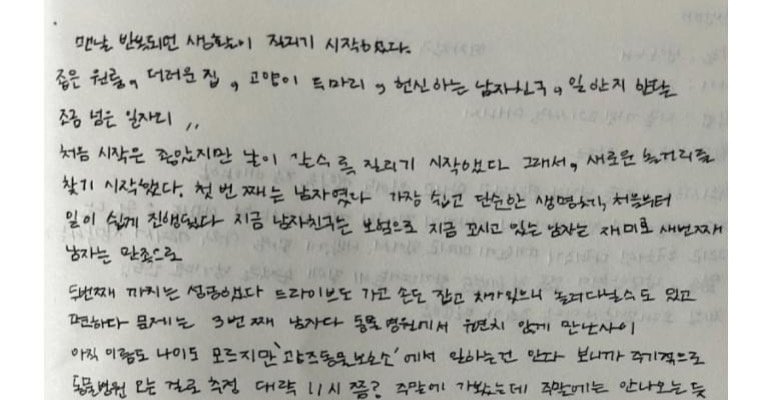 맨날 반복되던 생활이 질리기 시작했다.
좁은 원룸, 더러운 집, 고양이 두마리, 헌신하는 남자친구, 일 한지 한달
조금 넘은 일자리 ,,
처음 시작은 좋았지만 날이 갈수록 질리기 시작했다 그래서, 새로운 놀거리를
찾기 시작했다. 첫 번째는 남자였다 가장 쉽고 단순한 생명체, 처음부터
일이 쉽게 진행됐다 지금 남자친구는 보험으로 지금 꼬시고 있는 남자는 재미로 세번째
남자는 만족으로
두번째 까지는 성공했다 드라이브도 가고 손도 잡고 차가있으니 놀러다닐수도 있고
편하다 문제는 3번째 남자다 동물병원에서 우연치 않게 만난사이
아직 이름도 나이도 모르지만 '광주동물보호소' 에서 일하는건 안다 보니까 주기적으로
동물병원 오는 걸로 추정 대략 11시 쯤? 주말에 가봤는데 주말에는 안나오는 듯